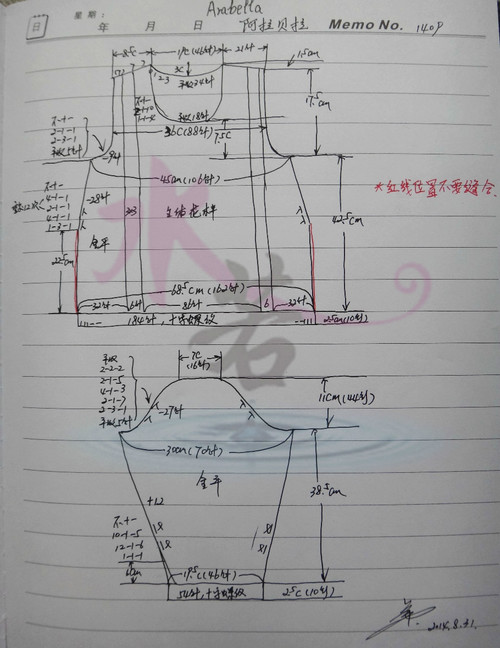 Arabella
星期:
日
年 月 日
阿拉贝拉
Memo No. 140P
8.5C
19C(46针)
21针
1.5cm
3C
平收34针
不+-
2-1-1
2-3-1
平收5针
-9针
平收18针
36C(88针)
7.5C
17.5cm
45cm(106针)
*红线位置不要缝合.
不+-
4-1-1
2-1-1
4-1-1
1-3-1
-28针
33
主结花样
42.5cm
全平
22.5cm
68.5cm(162针)
32针
6针
86针
6
32针
184针,十字螺纹
2.5cm(10行)
水岩
7C
(16针)
平收
2-2-2
2-1-5
4-1-3
2-1-7
2-3-1
平收5针
-27针
11cm(44行)
30cm(70针)
全平
38.5cm
+12
不+-
10-1-5
12-1-6
1-1-1
6cm
19.5C(46针)
54针,十字螺纹
2.5C(10行)
2014.8.31.